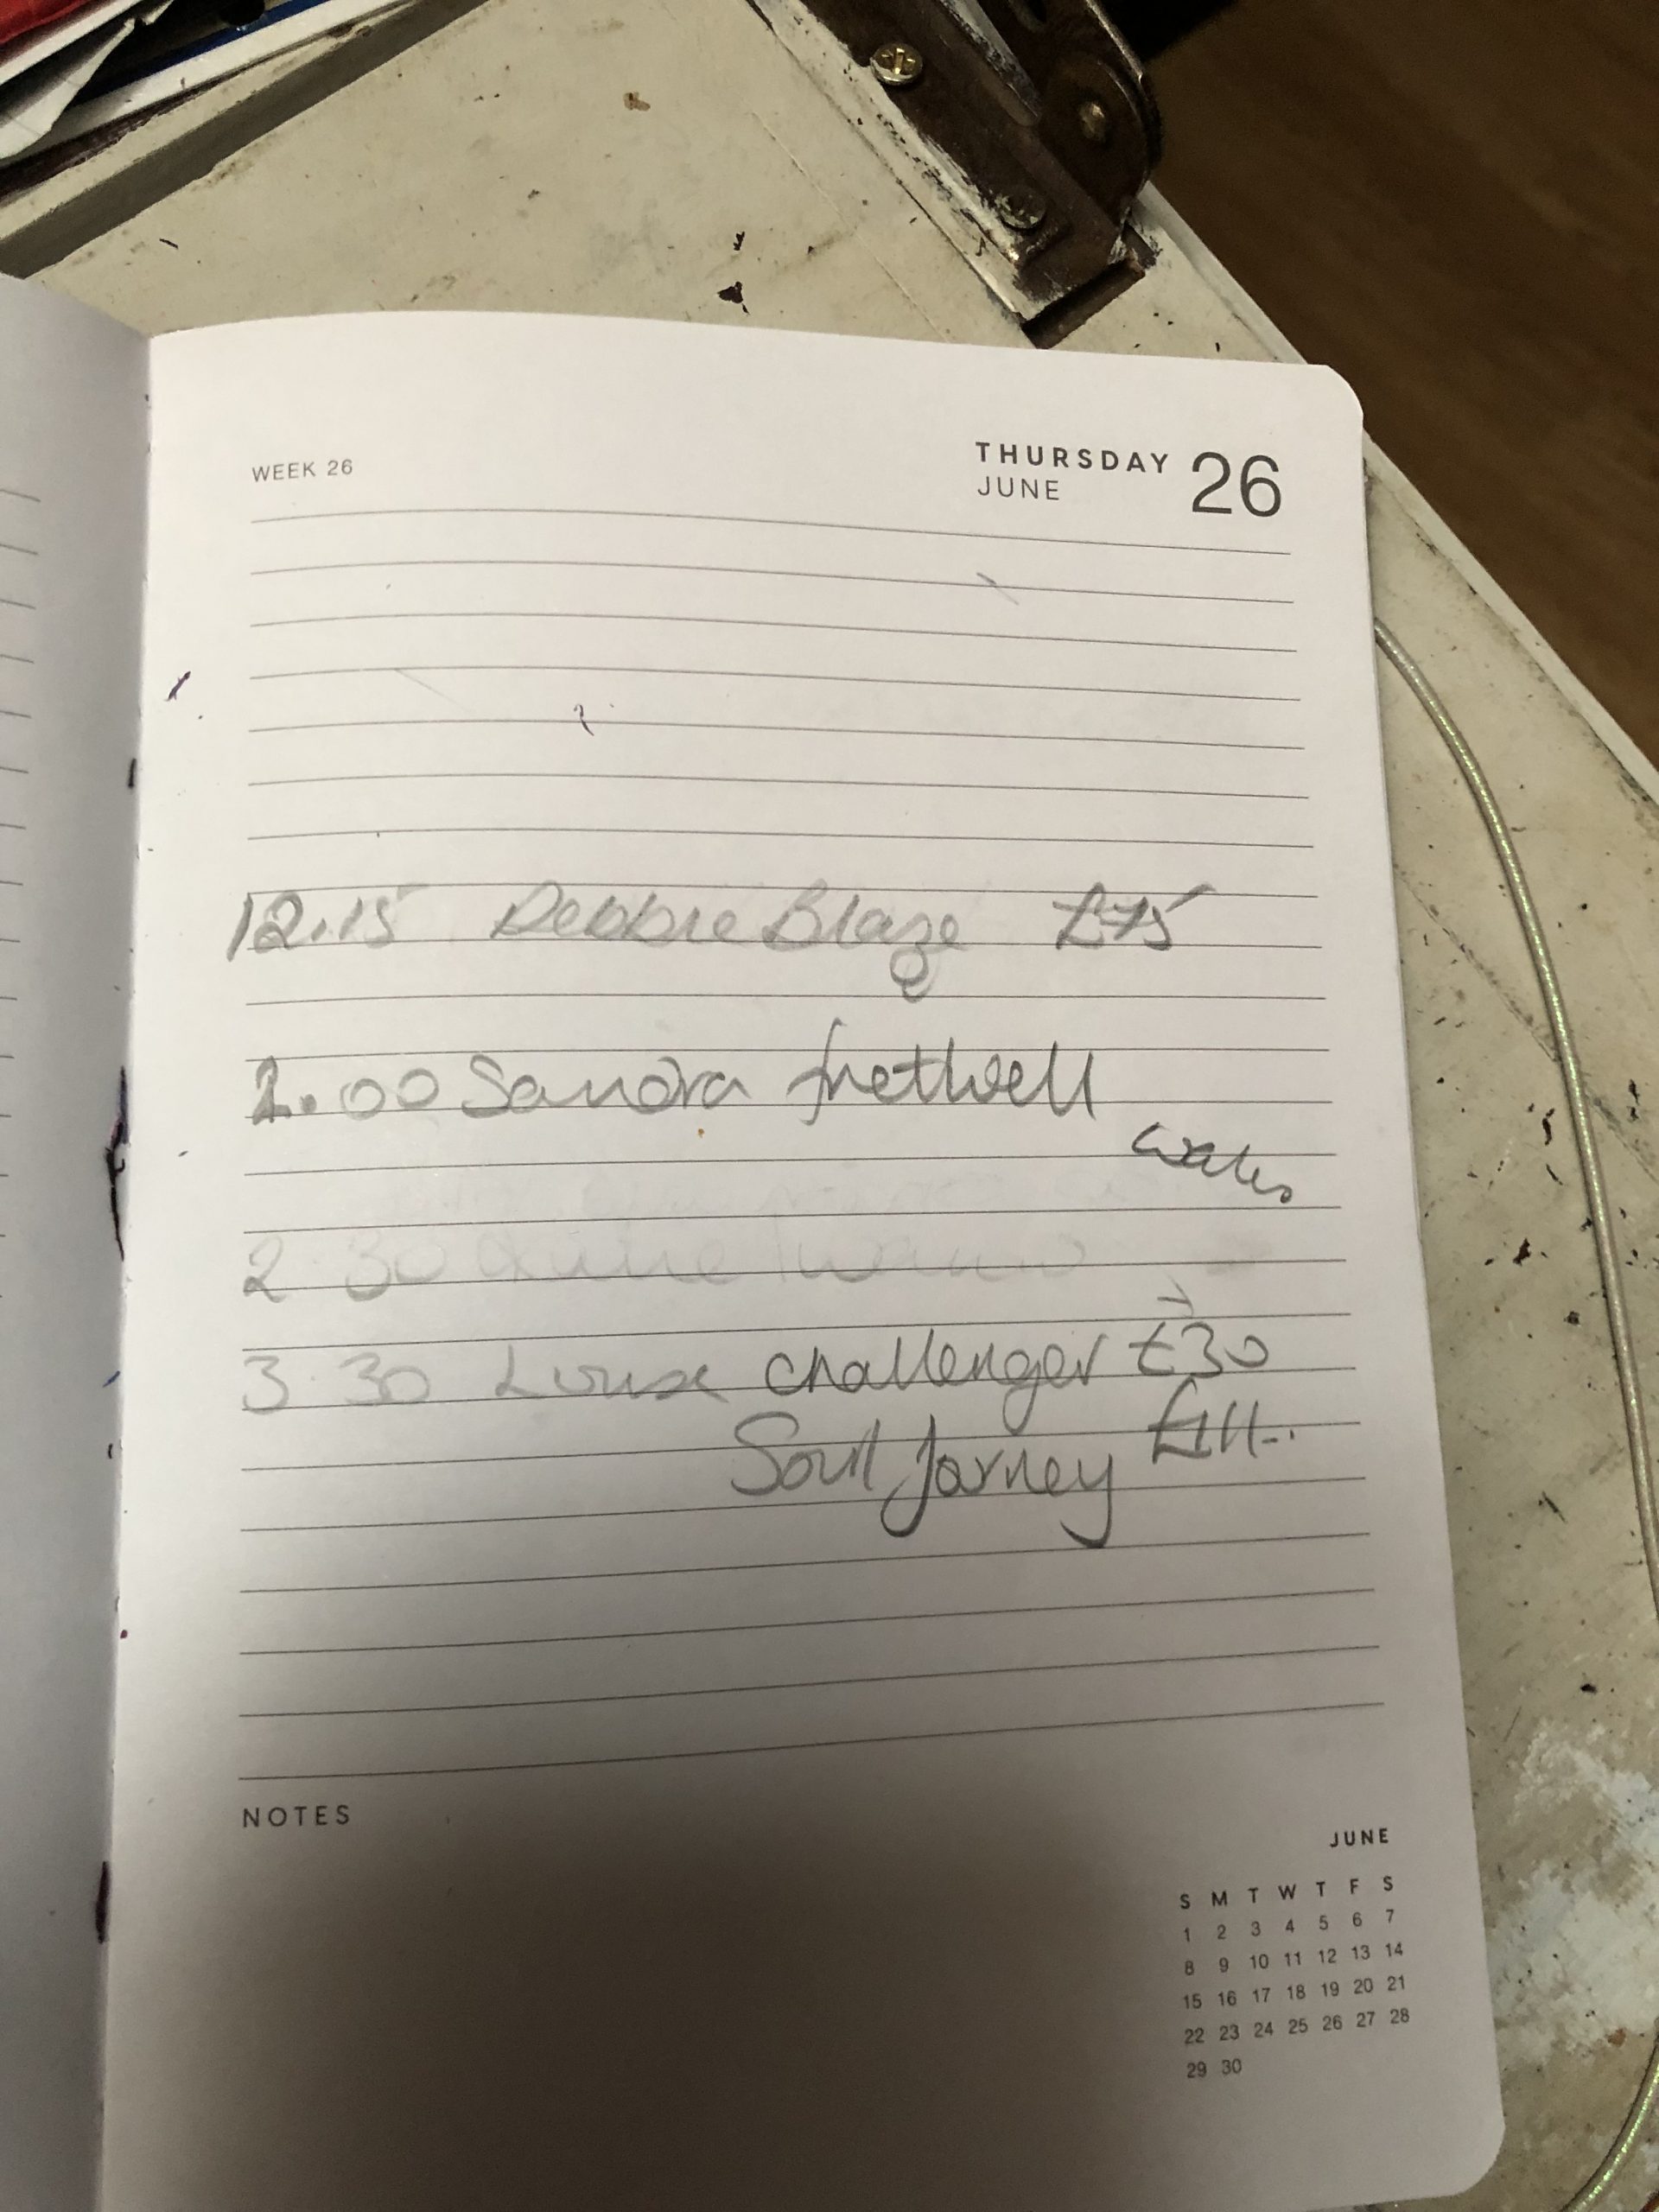 WEEK 26
THURSDAY 26
JUNE
12.15 Debbie Blaze £75
2.00 Sandra fretwell
wales
2 30
3.30 Louise challenger £30
Soul Jorney £11-.
NOTES
JUNE
S M T W T F S
1 2 3 4 5 6 7
8 9 10 11 12 13 14
15 16 17 18 19 20 21
22 23 24 25 26 27 28
29 30